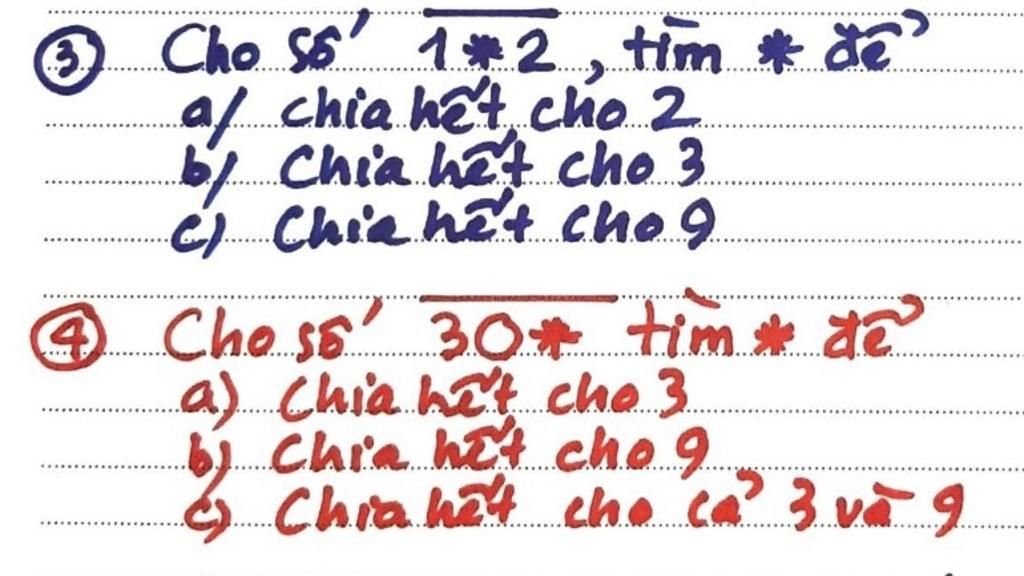 ③ Cho số 1*2, tìm * để
a/ chia hết cho 2
b/ Chia hết cho 3
c) Chia hết cho 9
④ Cho số 30* tìm * để
a) Chia hết cho 3
b) Chia hết cho 9
c) Chia hết cho cả 3 và 9